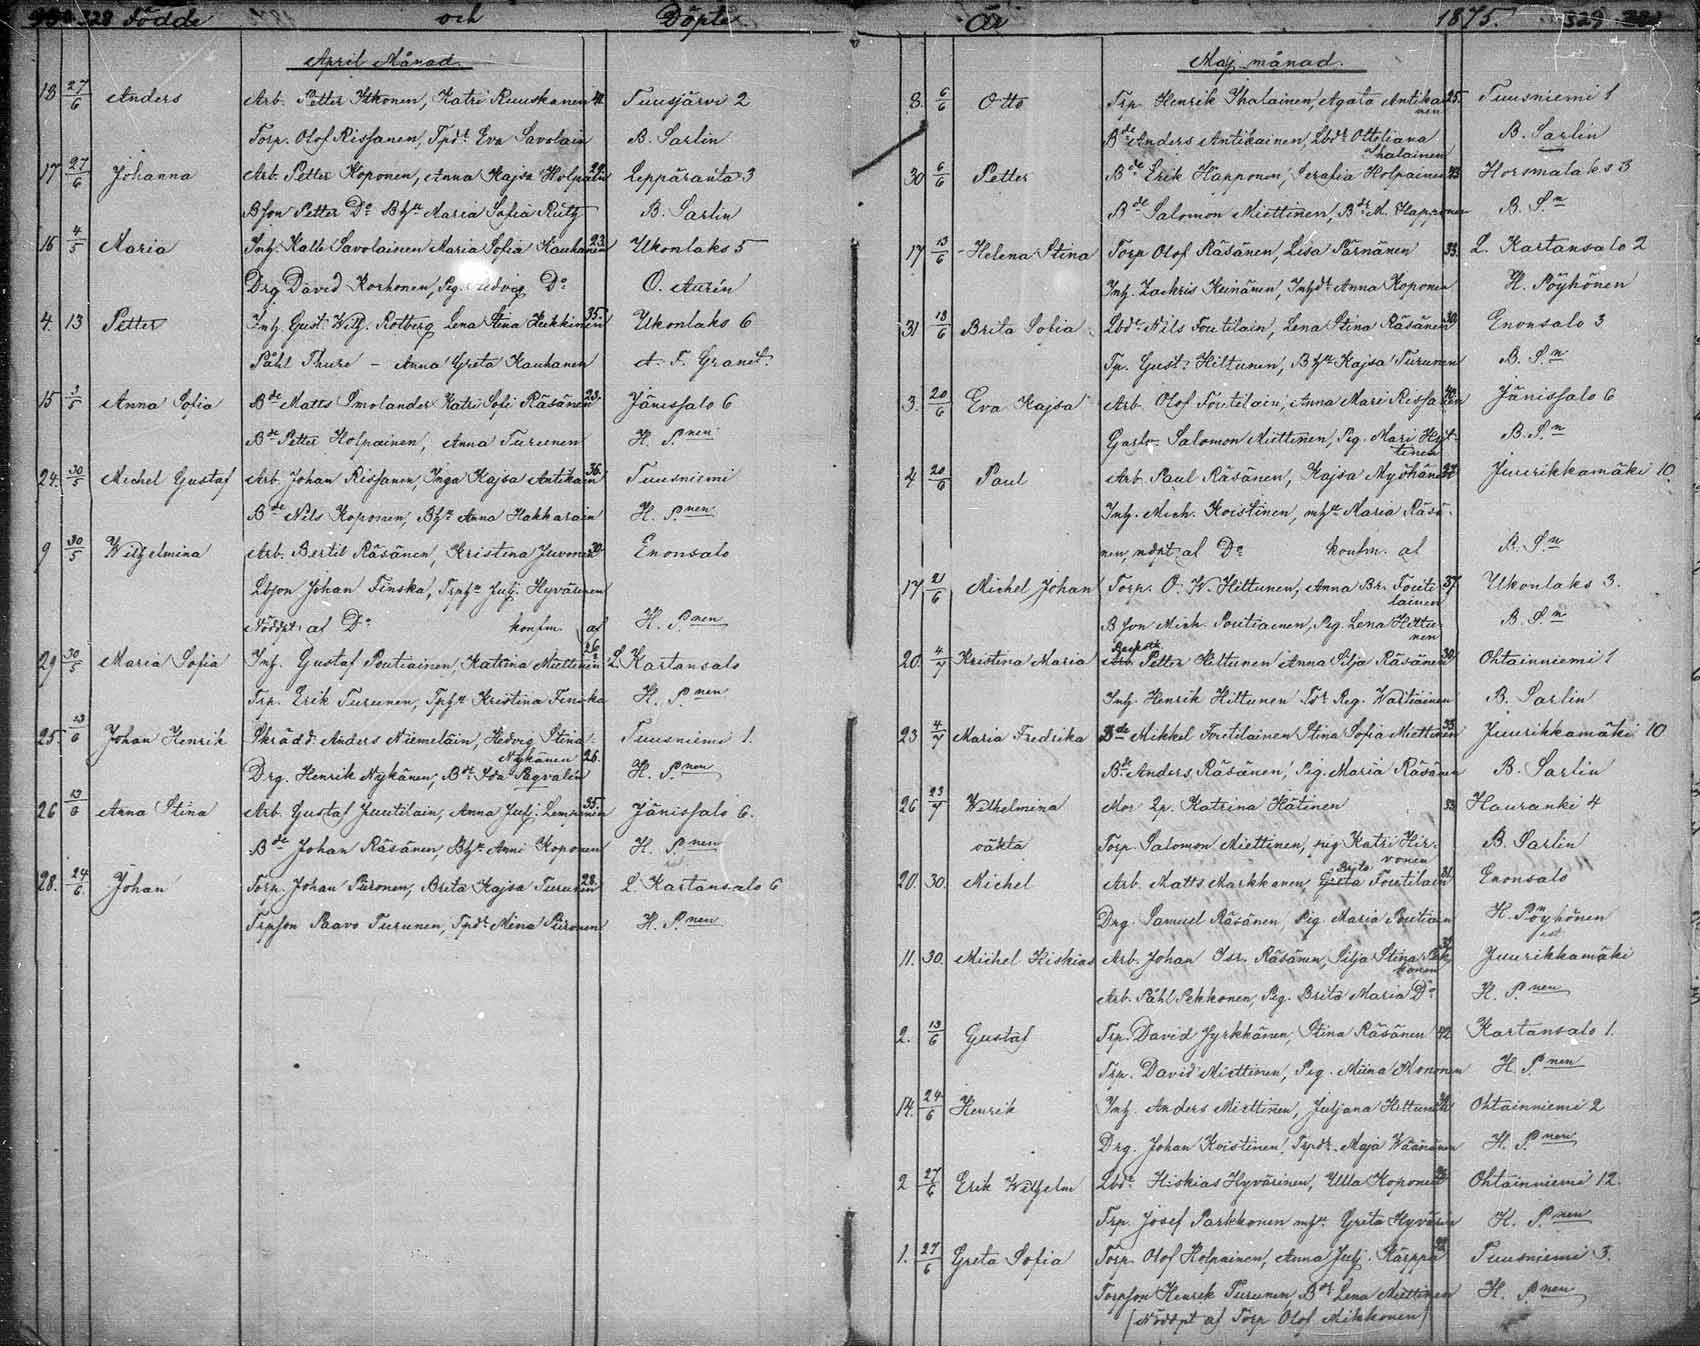 328 Födde och Döpte
April Månad.
13 27/6 Anders Arb. Petter Itkonen, Katri Ruuskanen Tuusjärvi 2
Torp. Olof Rissanen, Tpdr Eva Savolain B. Sarlin
17 27/6 Johanna Arb. Petter Koponen, Anna Kajsa Holpain 22. Leppäranta 3
BSon Petter Do Bhu Maria Sofia Rütz B. Sarlin
16 4/5 Maria Inh. Kalle Savolainen Maria Sofia Kauhanen 23. Ukonlaks 5
Drg David Korhonen, Pig. Hedvig Do O. Aurén
4. 13 Petter Inh. Gust. Wilh. Rotberg Lena Stina Heikkinen 35. Ukonlaks 6
Påhl Thure – Anna Greta Kauhanen A. F. Granit.
15 1/5 Anna Sofia Bde Matts Smolander Katri Sofi Räsänen 23. Jänissalo 6
Bde Petter Holpainen, Anna Turunen H. P.nen
24. 30/5 Michel Gustaf Arb. Johan Rissanen, Inga Kajsa Antikain 36. Tuusniemi
Bde Nils Koponen, Bhu Anna Hakkarain H. P.nen
9 30/5 Wilhelmina Arb. Bertil Räsänen, Kristina Juvonen 30. Enonsalo
Lbson Johan Finska, Trphu Julj. Hyvärinen
Nöddpt af Do konfm. af H. P.nen
29 30/5 Maria Sofia Inh. Gustaf Poutiainen, Katrina Miettinen 26. L. Kartansalo
Trp. Erik Turunen, Tphu Kristina Finska H. P.nen
25. 13/6 Johan Henrik Skrädd. Anders Niemeläin, Hedvig Stina Tuusniemi 1.
Nykänen 26.
Drg. Henrik Nykänen, Bdr Ida Pagvalin H. P.nen
26 13/6 Anna Stina Arb. Gustaf Juutilain, Anna Julj. Lempinen 35. Jänissalo 6.
Bde Johan Räsänen, Bhu Anni Koponen H. P.nen
28. 24/6 Johan Torp. Johan Piironen, Brita Kajsa Turunen 28. L. Kartansalo 6
Trpson Paavo Turunen, Tpdr Mina Piironen H. P.nen
År 1875. 329
Maj månad.
8. 6/6 Otto Trp. Henrik Ihalainen, Agata Antikai 25. Tuusniemi 1
nen
Bde Anders Antikainen, Lbdr Ottoliana B. Sarlin
Ihalainen
30 6/6 Petter Bde Erik Happonen, Serafia Holpainen 43. Horsmalaks 3
Bde Salomon Miettinen, Bdr M. Happonen B. S.n
17 13/6 Helena Stina Torp Olof Räsänen, Lisa Pärnänen 33. L. Kartansalo 2
Inh. Zachris Keinänen, Inhdr Anna Koponen H. Pöyhönen
31 13/6 Brita Sofia Lbde Nils Foutilain, Lena Stina Räsänen 30. Enonsalo 3
Tp. Gust. Hiltunen, Bhu Kajsa Turunen B. S.n
3. 20/6 Eva Kajsa Arb. Olof Foutilain, Anna Mari Rissanen Jänissalo 6
Garfv. Salomon Miettinen, Pig. Mari Hyt- B. S.n
tinen
4 20/6 Paul Arb. Paul Räsänen, Kajsa Myöhänen Juurikkamäki 10.
Inh. Mich. Koistinen, mhu Maria Räsä-
nen, nödpt. af Do konfm. af B. S.n
17 21/6 Michel Johan Torp. O. W. Hiltunen, Anna Br. Fouti- 37. Ukonlaks 3.
lainen
BSon Mich. Poutiainen, Pig. Lena Hiltu- B. S.n
nen
20. 4/7 Kristina Maria Petter Hiltunen Anna Silja Räsänen 30. Ohtainniemi 1
Inh. Henrik Hiltunen Tdr Reg. Wartiainen B. Sarlin
23 4/7 Maria Fredrika Bde Mikkel Foutilainen Stina Sofia Miettinen 33. Juurikkamäki 10
Bde Anders Räsänen, Pig. Maria Räsänen B. Sarlin
26 23/7 Wilhelmina Mor Lp. Katrina Hätinen 33. Hauranki 4
oäkta Torp. Salomon Miettinen, pig. Katri Hir- B. Sarlin
vonen
20. 30. Michel Arb. Matts Markkanen, Brita Foutilain 31. Enonsalo
Drg. Samuel Räsänen, Pig. Maria Poutiain H. Pöyhönen
11. 30. Michel Hiskias Arb. Johan Isr. Räsänen, Silja Stina Pek- Juurikkamäki
konen
Arb. Påhl Pekkonen, Pig. Brita Maria Do H. P.nen
2. 13/6 Gustaf Trp. David Jyrkkänen, Stina Räsänen 42. Kartansalo 1.
Trp. David Miettinen, Pig. Miina Mononen H. P.nen
14. 24/6 Henrik Inh. Anders Miettinen, Juljana Hiltunen Ohtainniemi 2
Drg. Johan Koistinen, Trpdr. Maja Wäänänen H. P.nen
2 27/6 Erik Wilhelm Lbde Hiskias Hyvärinen, Ulla Koponen Ohtainniemi 12.
Trp. Josef Parkkonen mhu Greta Hyvärin H. P.nen
1. 27/6 Greta Sofia Torp. Olof Holpainen, Anna Julj. Kärppä Tuusniemi 3.
Torpson Henrik Turunen, Bdr Lena Miettinen H. P.nen
(Nöddpt af Torp Olof Mikkonen)